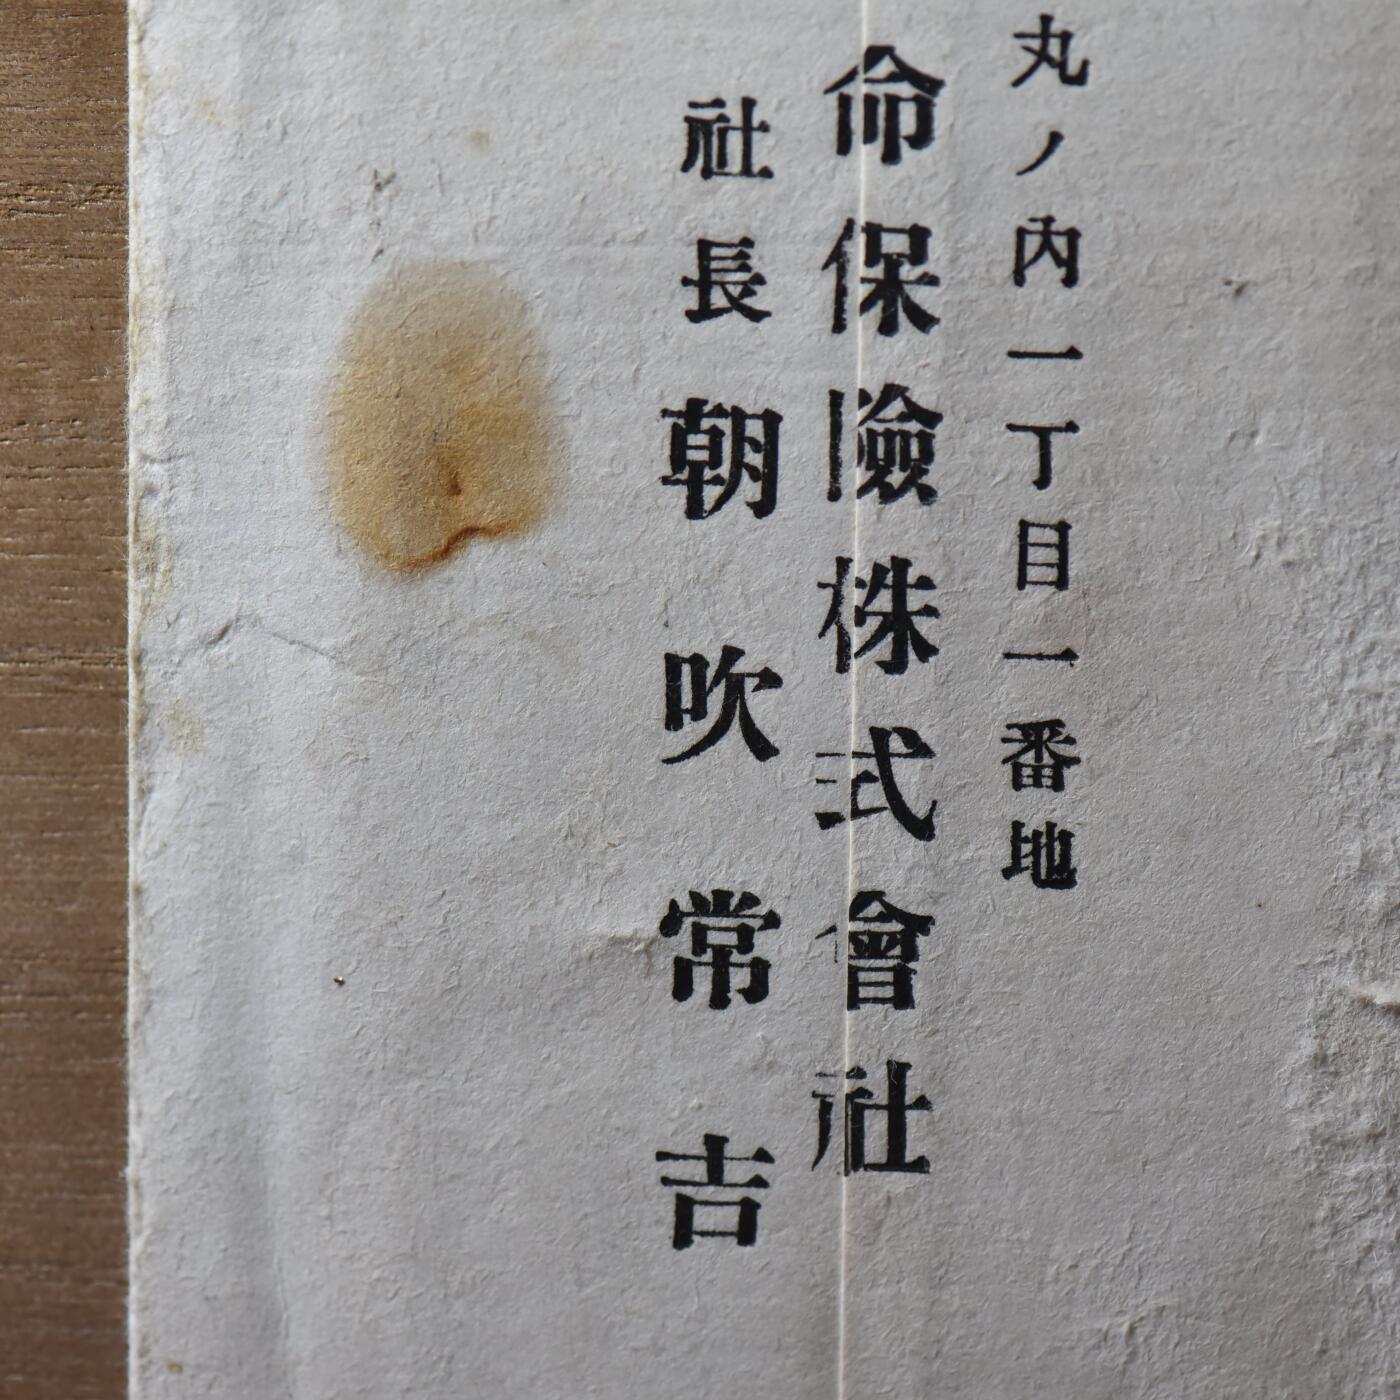 丸ノ內一丁目一番地
命保險株式會社
社長朝吹常吉